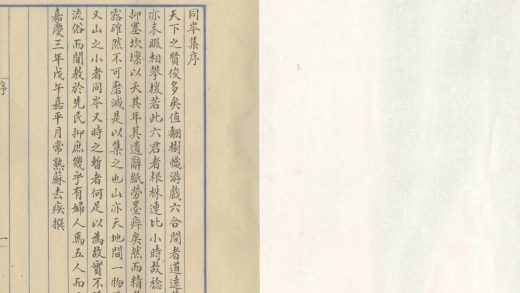 同岑集序
天下之賢俊多矣值翻樹幟游戲六合間者道遠
亦未暇相攀援若此六君者根株連比小時故
抑塞坎壈以夭其年其遺辭紙勞墨瘁矣然而精
露確然不可磨滅是以集之也山亦天地間一物
又山之小者同岑又時之暫者何足以為故實不
流俗而聞教於先民抑庶幾乎有婦人焉五人而
嘉慶三年戊午嘉平月常熟蘇去疾撰
序
一